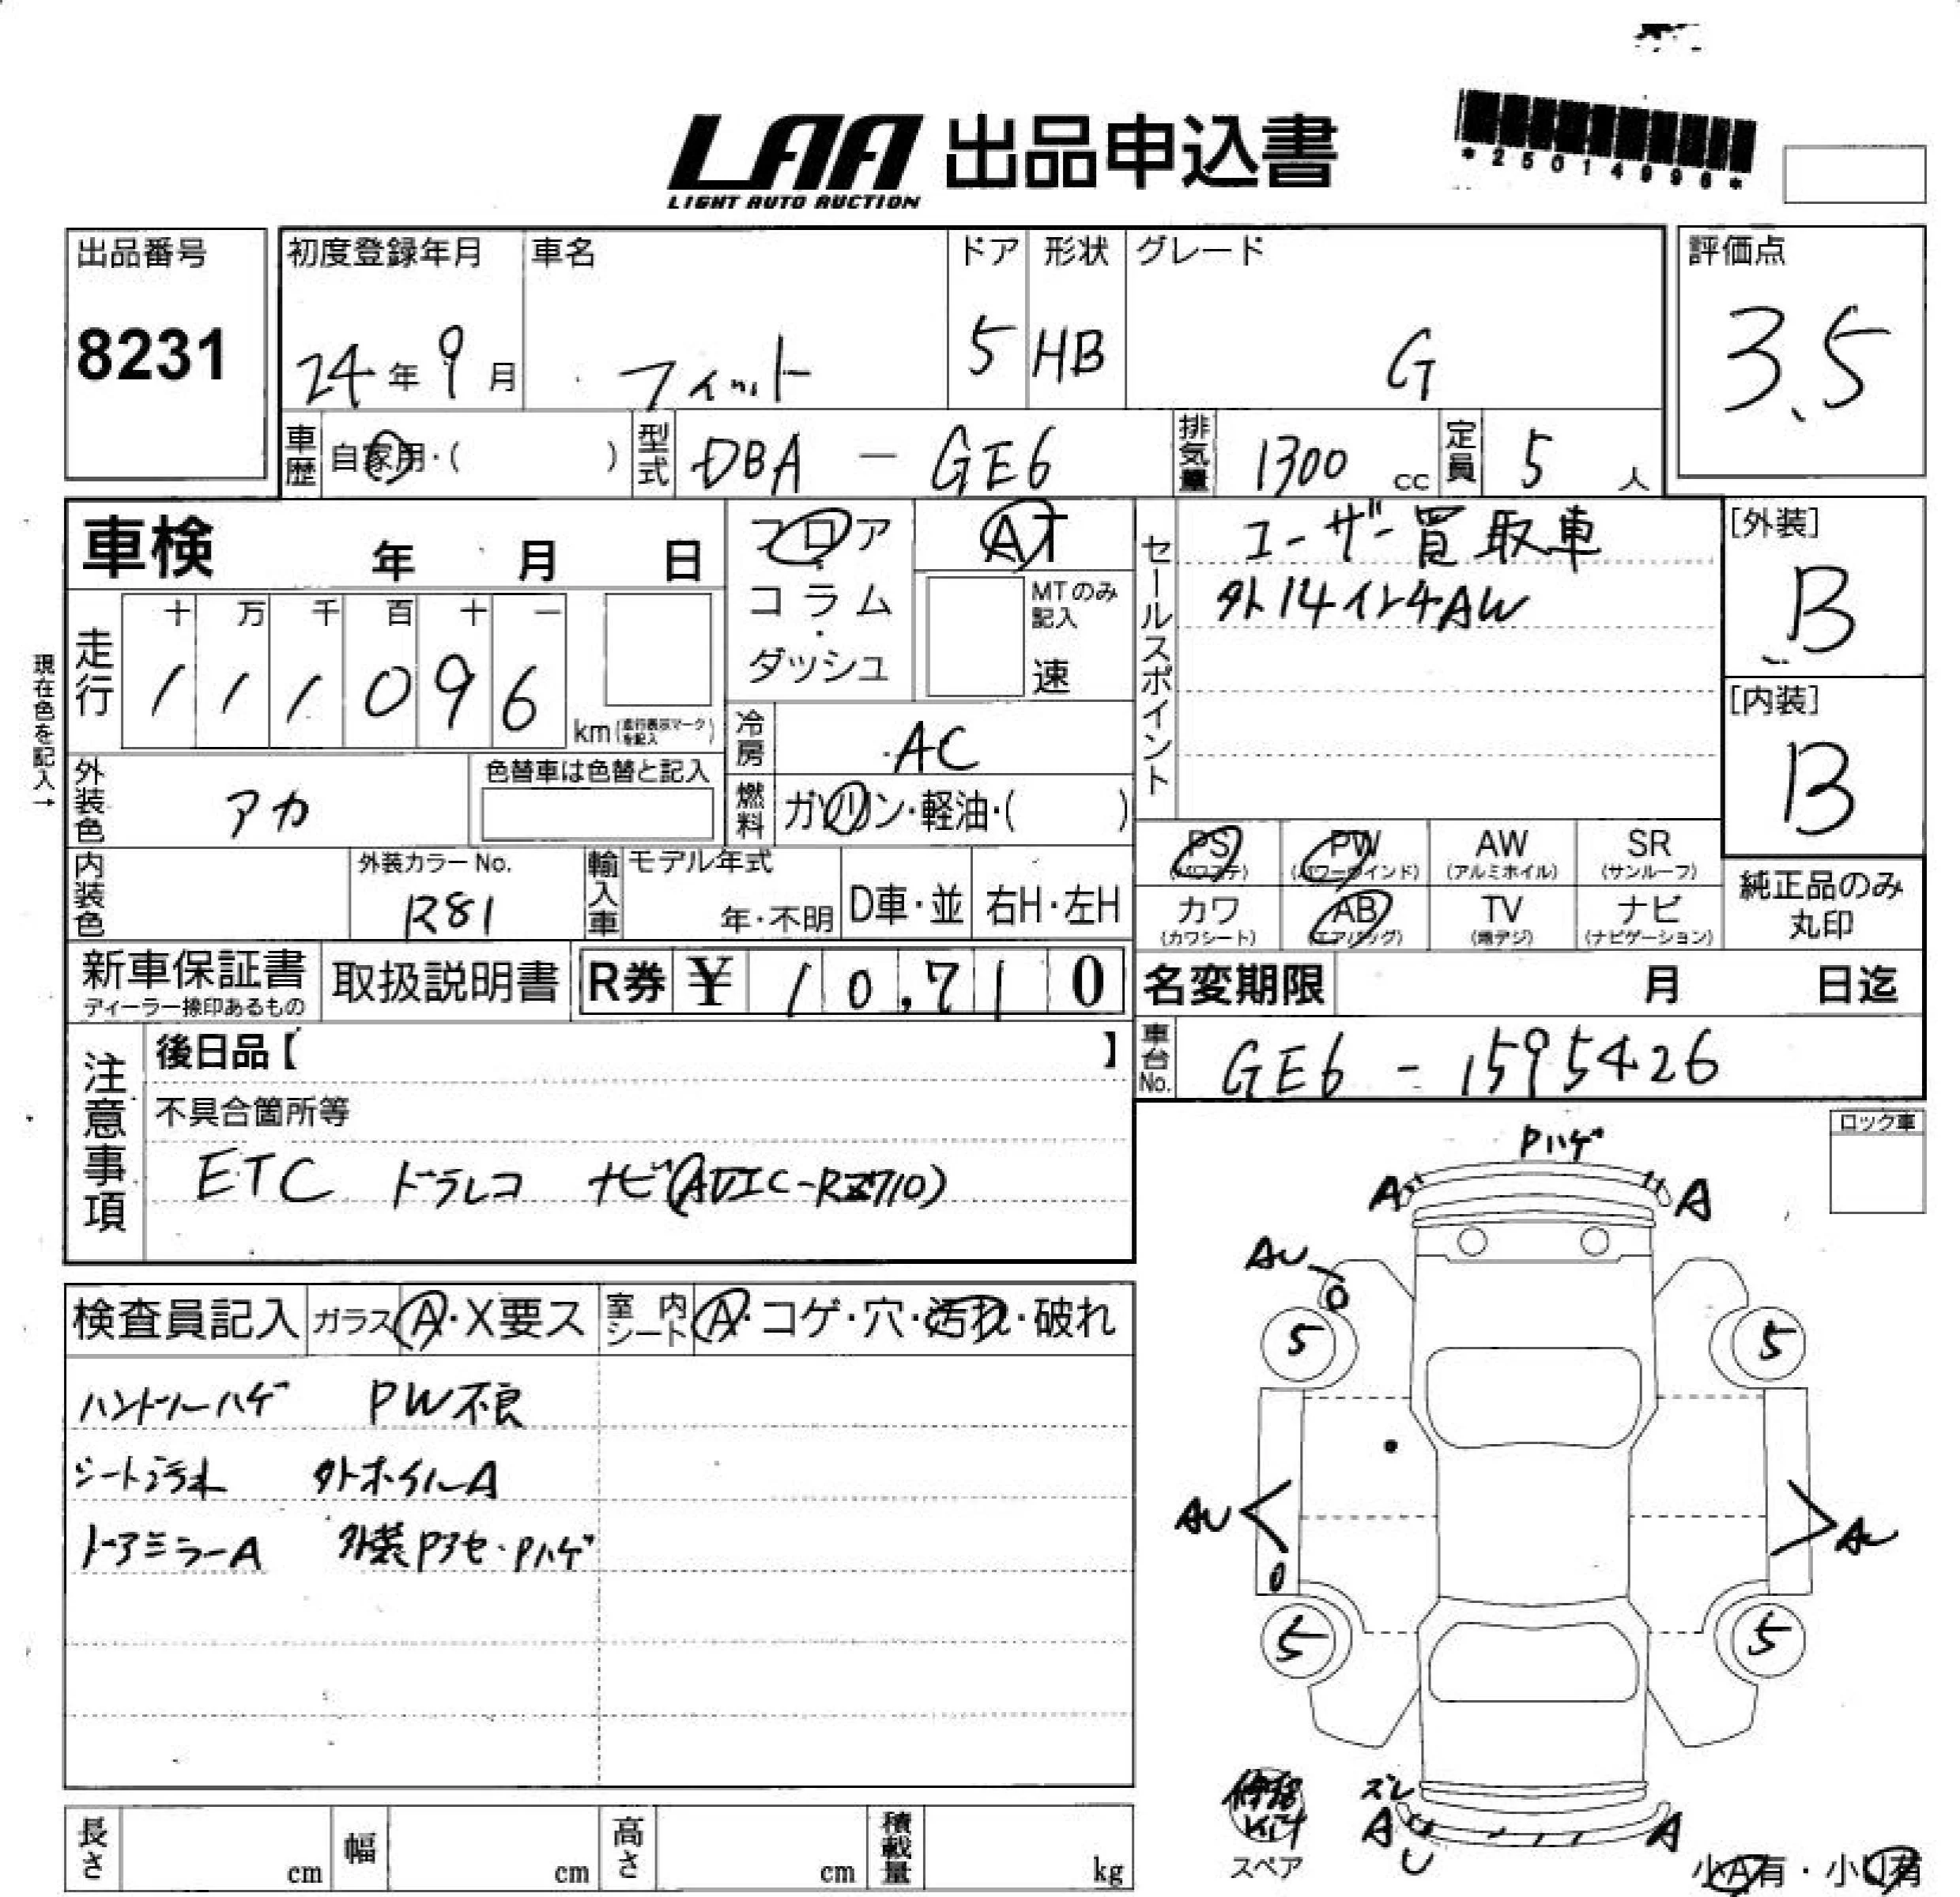 LAA 出品申込書
LIGHT AUTO AUCTION
*25014996*
出品番号 初度登録年月 車名 ドア 形状 グレード 評価点
8231 24年 9月 フィット 5 HB G 3.5
車歴 自家用・( ) 型式 DBA - GE6 排気量 1300 cc 定員 5 人
車検 年 月 日 フロア・コラム・ダッシュ AT
MTのみ記入 速
セールスポイント
ユーザー買取車
外14インチAW
[外装]
B
[内装]
B
現在色を記入→
走行 十 万 千 百 十 一
1 1 1 0 9 6 km (走行表示マークを記入)
冷房 AC
外装色 アカ 色替車は色替と記入
燃料 ガソリン・軽油・( )
内装色 外装カラーNo. R81 輸入車 モデル年式 年・不明 D車・並 右H・左H
PS (パワステ) PW (パワーウインド) AW (アルミホイル) SR (サンルーフ)
カワ (カワシート) AB (エアバッグ) TV (地デジ) ナビ (ナビゲーション)
純正品のみ丸印
新車保証書 ディーラー捺印あるもの 取扱説明書 R券 ¥ 10,710
名変期限 月 日迄
車台No. GE6 - 1595426
注意事項
後日品【 】
不具合箇所等
ETC ドラレコ ナビ(AVIC-RZ710)
ロック車
検査員記入 ガラス A・X要ス 室内シート A・コゲ・穴・汚れ・破れ
ハンドルハゲ PW不良
シート汚れ 外ホイルA
ドアミラーA 外装Pアセ・Pハゲ
Pハゲ
A A
AU
5 5
AU AU
5 5
修理Kit
スペア
ズレ
A A
U
小A有・小U有
長さ cm 幅 cm 高さ cm 積載量 kg